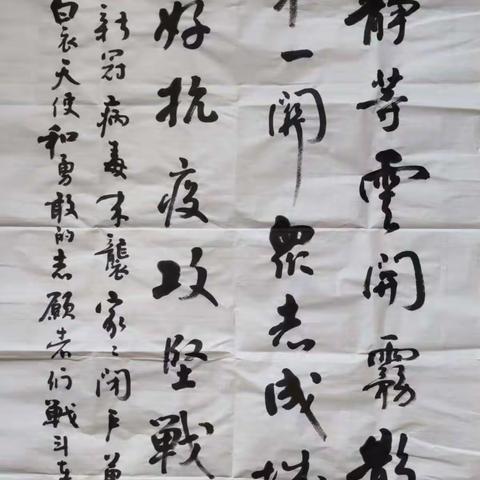 静等雲開霧散
一開眾志成城
好抗疫攻堅戰
新冠病毒来襲家々閉户萬
白衣天使和勇敢的志願者们戰斗在